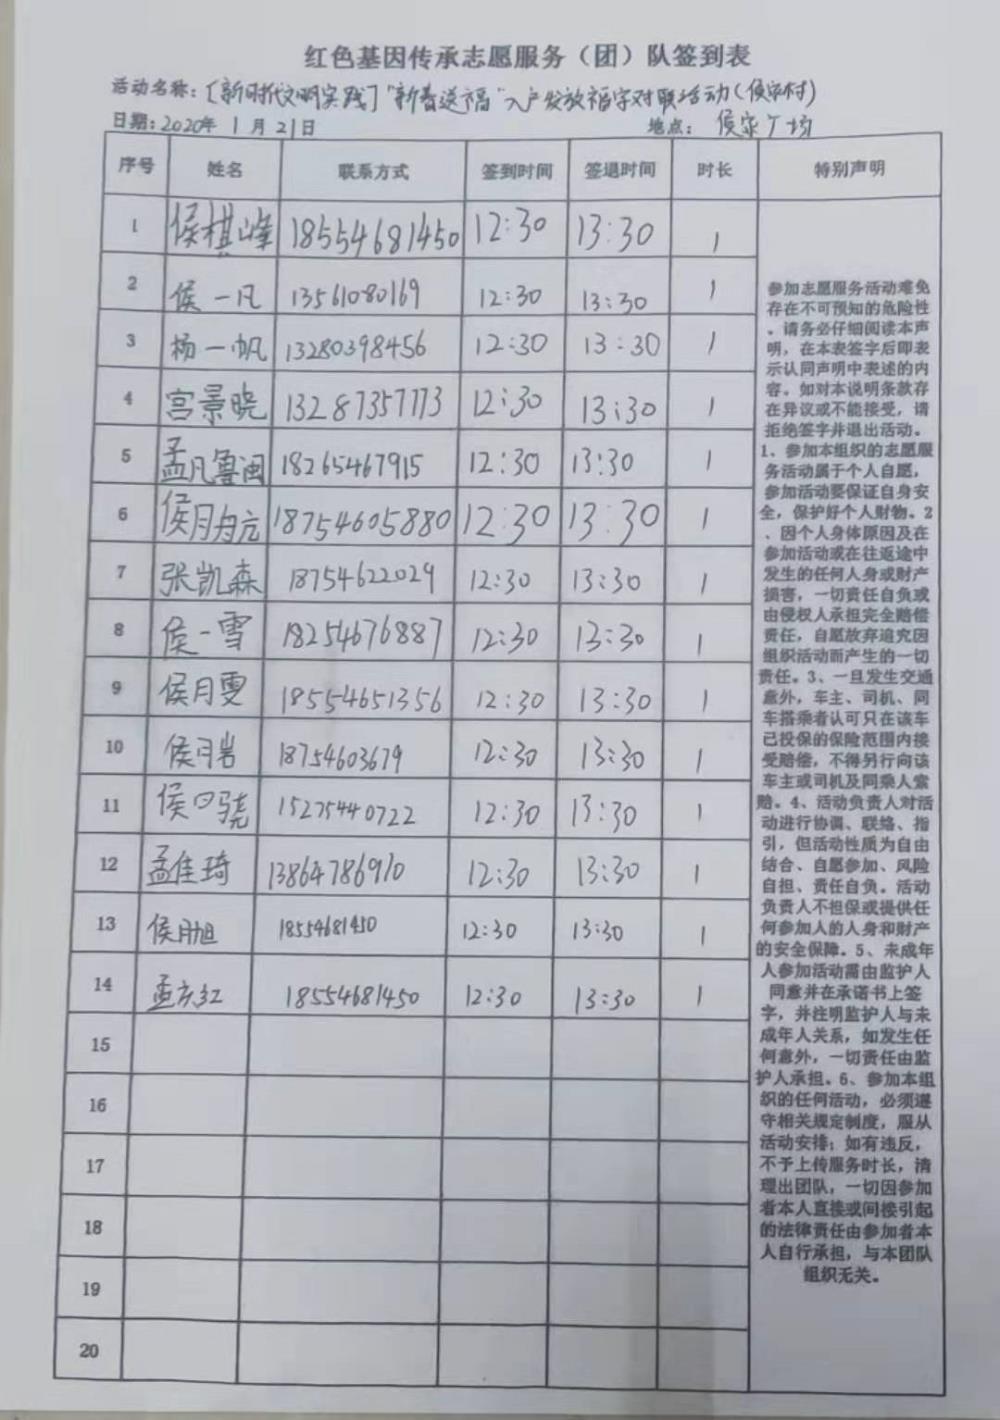 红色基因传承志愿服务（团）队签到表
活动名称：[新时代文明实践]"新春送福"入户发放福字对联活动(侯家村)
日期：2020年1月21日 地点：侯家广场
序号 姓名 联系方式 签到时间 签退时间 时长 特别声明
1 侯棋峰 18554681450 12:30 13:30 1
2 侯一凡 13561080169 12:30 13:30 1
3 杨一帆 13280398456 12:30 13:30 1
4 宫景晓 13287357173 12:30 13:30 1
5 孟凡鲁闽 18265467915 12:30 13:30 1
6 侯月 18754605880 12:30 13:30 1
7 张凯森 18754622029 12:30 13:30 1
8 侯一雪 18254676887 12:30 13:30 1
9 侯月雯 18554651356 12:30 13:30 1
10 侯月岩 18754603679 12:30 13:30 1
11 侯 骁 15275440722 12:30 13:30 1
12 孟佳琦 13864786910 12:30 13:30 1
13 侯月旭 18554681450 12:30 13:30 1
14 孟 红 18554681450 12:30 13:30 1
15
16
17
18
19
20
参加志愿服务活动难免
存在不可预知的危险性
。请务必仔细阅读本声
明，在本表签字后即表
示认同声明中表述的内
容。如对本说明条款存
在异议或不能接受，请
拒绝签字并退出活动。
1、参加本组织的志愿服
务活动属于个人自愿，
参加活动要保证自身安
全，保护好个人财物。2
、因个人身体原因及在
参加活动或在往返途中
发生的任何人身或财产
损害，一切责任自负或
由侵权人承担完全赔偿
责任，自愿放弃追究因
组织活动而产生的一切
责任。3、一旦发生交通
意外，车主、司机、同
车搭乘者认可只在该车
已投保的保险范围内接
受赔偿，不得另行向该
车主或司机及同乘人索
赔。4、活动负责人对活
动进行协调、联络、指
引，但活动性质为自由
结合、自愿参加、风险
自担、责任自负。活动
负责人不担保或提供任
何参加人的人身和财产
的安全保障。5、未成年
人参加活动需由监护人
同意并在承诺书上签
字，并注明监护人与未
成年人关系，如发生任
何意外，一切责任由监
护人承担。6、参加本组
织的任何活动，必须遵
守相关规定制度，服从
活动安排；如有违反，
不予上传服务时长，清
理出团队，一切因参加
者本人直接或间接引起
的法律责任由参加者本
人自行承担，与本团队
组织无关。